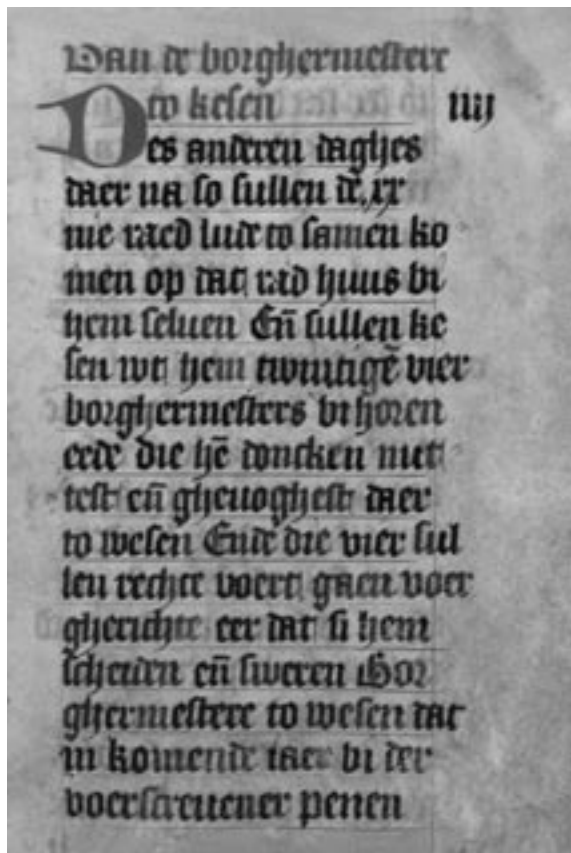 Van dē borghermestere
to kesen iiij
Des anderen daghes
daer na so sullen dē xx
nie raed lude to samen ko
men op dat rad huus bi
hem seluen Eñ sullen ke
sen wt hem twintigē vier
borghermesters bi horen
eede die hē doncken nut
test eñ gheuoghest daer
to wesen Ende die vier sul
len rechte voert gaen voer
gherichte eer dat si hem
scheiden eñ sweren Bor
ghermestere to wesen dat
in komende iaer bi der
voerscreuener penen